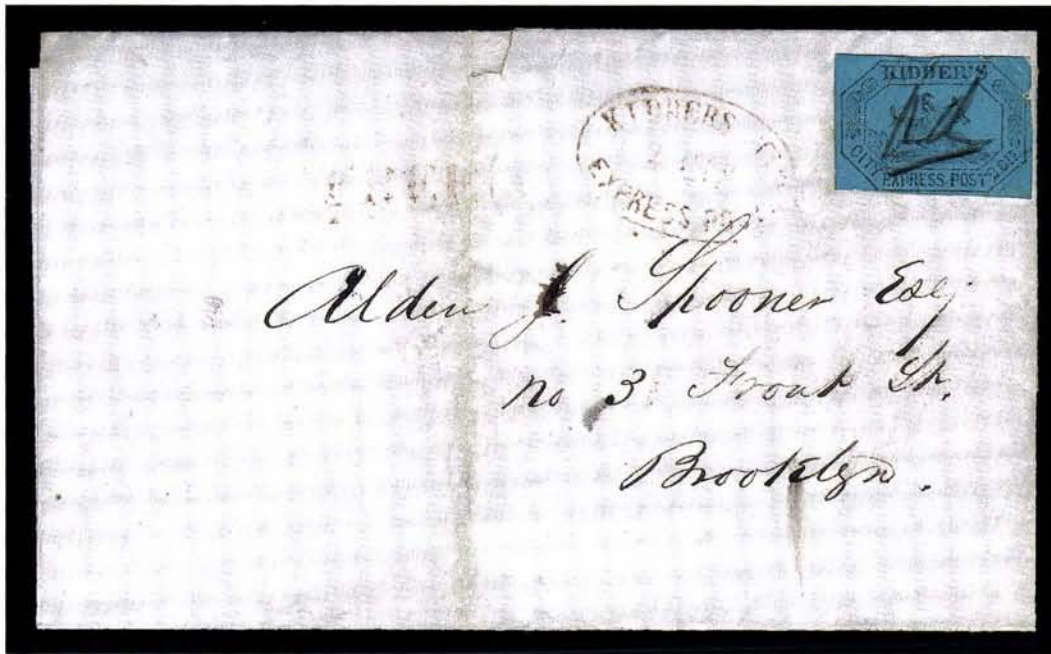 KIDDER'S
CITY
EXPRESS POST
2 CTS.
KIDDERS
EXPRESS
Alden J. Spooner Esq
no 3 Front St.
Brooklyn.